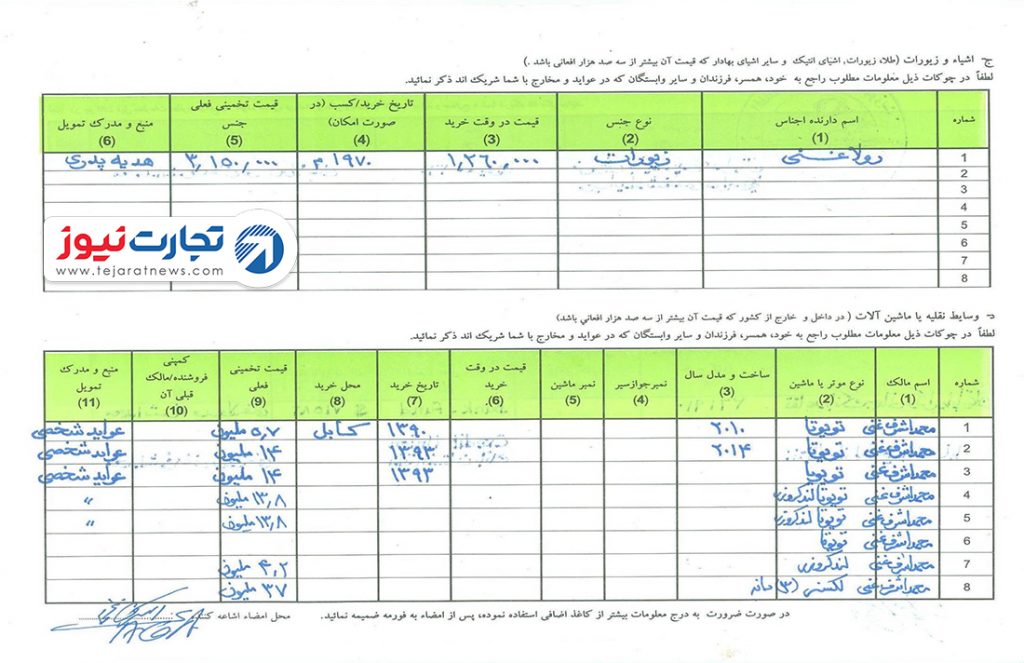 ج- اشیاء و زیورات (طلا، زیورات, اشیای انتیک و سایر اشیای بهادار که قیمت آن بیشتر از سه صد هزار افغانی باشد .)
لطفاً در چوکات ذیل معلومات مطلوب راجع به خود، همسر، فرزندان و سایر وابستگان که در عواید و مخارج با شما شریک اند ذکر نمائید.
شماره اسم دارنده اجناس (1) نوع جنس (2) قیمت در وقت خرید (3) تاریخ خرید/کسب (در صورت امکان) (4) قیمت تخمینی فعلی جنس (5) منبع و مدرک تمویل (6)
1 رولا غنی زیورات ۱٫۲۶۰٫۰۰۰ ۱۹۷۰ م ۳٫۱۵۰٫۰۰۰ هدیه پدری
2
3
4
5
6
7
8
تجارت نیوز
www.tejaratnews.com
د- وسایط نقلیه یا ماشین آلات ( در داخل و خارج از کشور که قیمت آن بیشتر از سه صد هزار افغانی باشد)
لطفاً در چوکات ذیل معلومات مطلوب راجع به خود، همسر، فرزندان و سایر وابستگان که در عواید و مخارج با شما شریک اند ذکر نمائید.
شماره اسم مالک (1) نوع موتر یا ماشین (2) ساخت و مدل سال (3) نمبرجوازسیر (4) نمبر ماشین (5) قیمت در وقت خرید (6). تاریخ خرید (7) محل خرید (8) قیمت تخمینی فعلی (9) کمپنی فروشنده/مالک قبلی آن (10) منبع و مدرک تمویل (11)
1 محمد اشرف غنی تویوتا ۲۰۱۰ ۱۳۹۰ کابل ۵٫۷ ملیون عواید شخصی
2 محمد اشرف غنی تویوتا ۲۰۱۴ ۱۳۹۳ ۱۴ ملیون عواید شخصی
3 محمد اشرف غنی تویوتا ۱۳۹۳ ۱۴ ملیون عواید شخصی
4 محمد اشرف غنی تویوتا لندکروزر ۱۳٫۸ ملیون "
5 محمد اشرف غنی تویوتا لندکروزر ۱۳٫۸ ملیون "
6 محمد اشرف غنی تویوتا
7 محمد اشرف غنی لندکروزر ۴٫۲ ملیون
8 محمد اشرف غنی لکسس (۳) دانه ۳۷ ملیون
در صورت ضرورت به درج معلومات بیشتر از کاغذ اضافی استفاده نموده، پس از امضاء به فورمه ضمیمه نمائید. محل امضاء اشاعه کننده